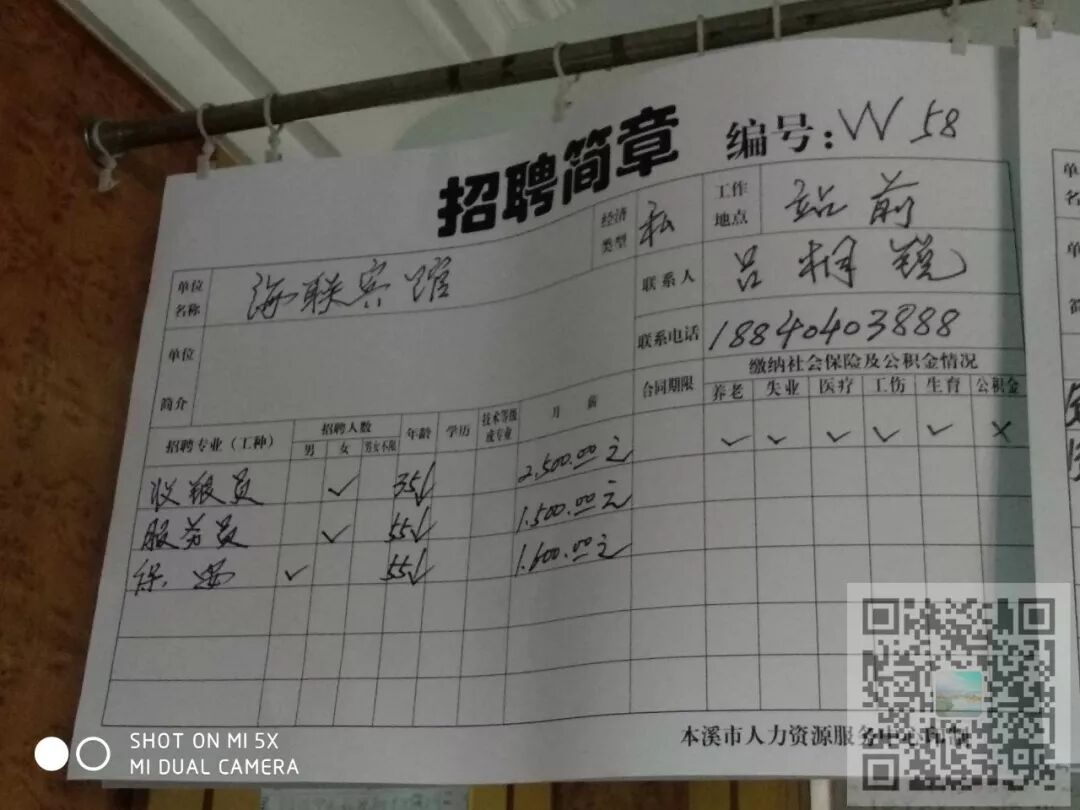 招聘简章
编号: W 58
单位名称 海联宾馆 经济类型 私 工作地点 站前
联系人 吕桐锐
单位简介 联系电话 18840403888
合同期限 缴纳社会保险及公积金情况
养老 失业 医疗 工伤 生育 公积金
招聘专业（工种） 招聘人数 年龄 学历 技术等级或专业 月薪
男 女 男女不限
✓ ✓ ✓ ✓ ✓ ×
收银员 ✓ 35↓ 2.500.00元
服务员 ✓ 55↓ 1.500.00元
保安 ✓ 55↓ 1.600.00元
本溪市人力资源服务中心印制
SHOT ON MI 5X
MI DUAL CAMERA